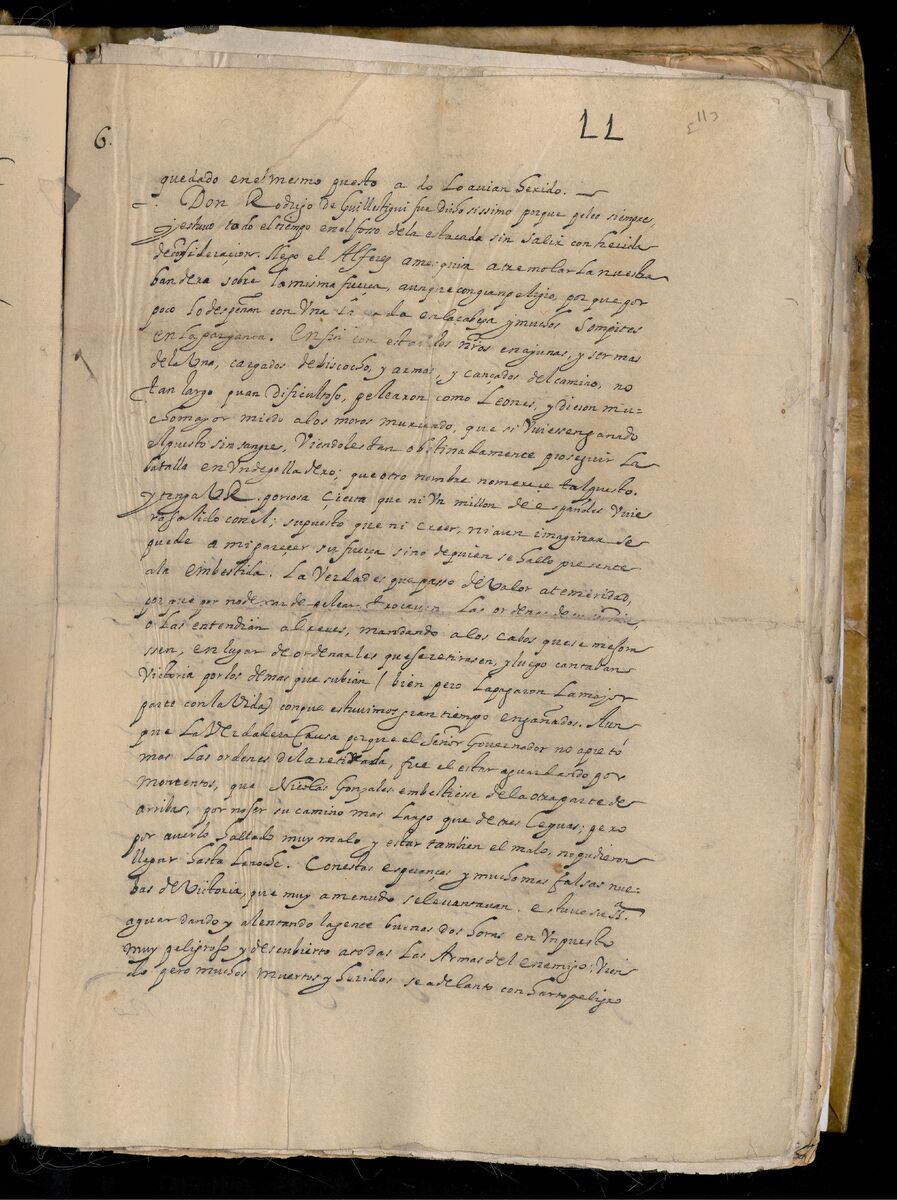 6.
LL
113
quedado en el mesmo puesto a do lo avian herido.
Don Rodrigo de Guillestigui fue dichosissimo porque peleo siempre,
y estuvo todo el tiempo en el foso de la estacada sin salir con herida
de consideraçion. llego el Alferez amezquita a tremolar la nuestra
bandera sobre la misma fuerça, aunque con gran peligro, porque por
poco lo despeñan con Una en la cabeça y muchos Sompites
en la garganta. En fin con estar los nros en ajunas, y ser mas
de la Una, cargados de biscocho, y armas, y cançados del camino, no
tan largo quan dificultoso, pelearon como Leones, y dieron mu-
cho mayor miedo a los moros muriendo, que si Uviessen ganado
el puesto sin sangre, Viendoles tan obstinadamente proseguir la
batalla en Un degolladero; que otro nombre no merece tal puesto.
y tenga V R. por cosa çierta que ni Un millon de españoles Uvie
ra salido con el; supuesto que ni creer, ni aun imaginar se
puede a mi pareçer su fuerça sino de quien se hallo presente
a la embestida. La Verdad es que passo de valor a temeridad,
porque por no dexar de pelear trocavan las ordenes de
o las entendian al reves, mandando a los cabos que se mejora
ssen, en lugar de ordenarles que se retirasen, y luego cantaban
Victoria por los demas que subian / bien pero la pagaron la mayor
parte con la Vida) con que estuvimos gran tiempo engañados. Aun
que la Verdadera Causa porque el Señor Governador no apretó
mas las ordenes de la retirada, fue el estar aguardando por
momentos, que Nicolas Gonzales embestiesse de la otra parte de
arriba, por no ser su camino mas largo que de tres leguas; pero
por averlo hallado muy malo y estar tambien el malo, no pudieron
llegar hasta la noche. Con estas esperanças y mucho mas falsas nue-
bas de Victoria, que muy amenudo se levantavan. estuvo su Sª.
aguardando y alentando la gente buenas dos horas en Un puesto
muy peligroso y descubierto a todas las Armas del enemigo; Vien
do pero muchos muertos y heridos se adelanto con harto peligro